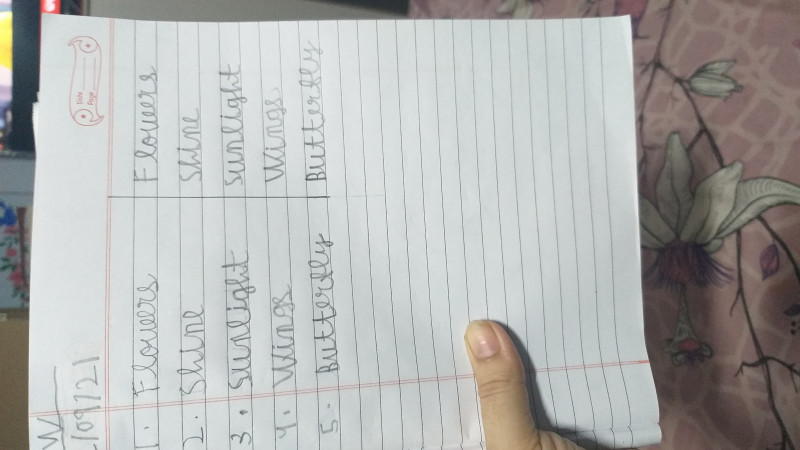 W
/09/21
Date
Page
1. Flowers Flowers
2. Shine Shine
3. Sunlight Sunlight
4. Wings Wings
5. Butterfly Butterfly